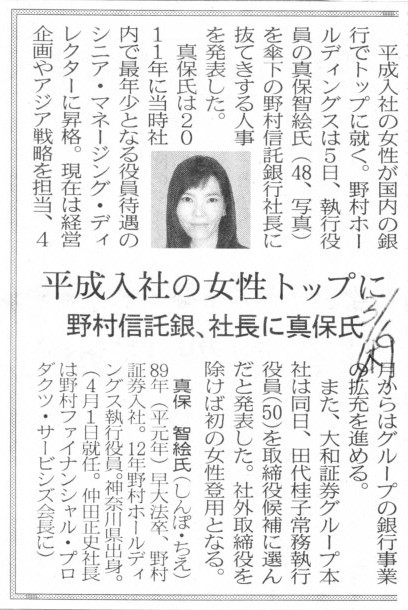 平成入社の女性が国内の銀
行でトップに就く。野村ホー
ルディングスは５日、執行役
員の真保智絵氏（48、写真）
を傘下の野村信託銀行社長に
抜てきする人事
を発表した。
真保氏は２０
１１年に当時社
内で最年少となる役員待遇の
シニア・マネージング・ディ
レクターに昇格。現在は経営
企画やアジア戦略を担当、４
平成入社の女性トップに
野村信託銀、社長に真保氏
月からはグループの銀行事業
の拡充を進める。
また、大和証券グループ本
社は同日、田代桂子常務執行
役員（50）を取締役候補に選ん
だと発表した。社外取締役を
除けば初の女性登用となる。
真保　智絵氏（しんぽ・ちえ）
89年（平元年）早大法卒、野村
証券入社。12年野村ホールディ
ングス執行役員。神奈川県出身。
（４月１日就任。仲田正史社長
は野村ファイナンシャル・プロ
ダクツ・サービシズ会長に）